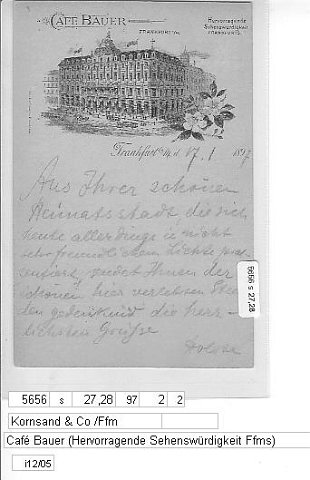 CAFÉ BAUER
FRANKFURT a/M.
Hervorragende
Sehenswürdigkeit
FRANKFURTS.
Frankfurt a/M. d. 17.1 1897
Aus Ihrer schönen
Heimatsstadt, die sich
heute allerdings in nicht
sehr freundlichem Lichte
sendet Ihnen der
schönen hier verlebten
gedenkend die herz-
lichsten Grüße
5656 s 27,28
5656 s 27,28 97 2 2
Kornsand & Co /Ffm
Café Bauer (Hervorragende Sehenswürdigkeit Ffms)
i12/05